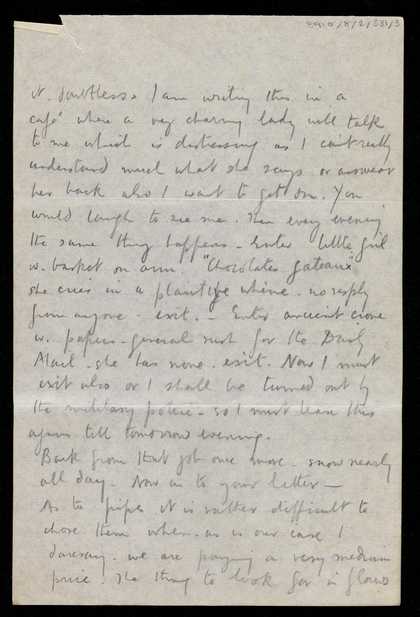 it. doubtless. I am writing this in a
café where a very charming lady will talk
to me which is distressing as I can't really
understand much what she says or answer
her back also I want to get on. You
would laugh to see me. Then every evening
the same thing happens - Enter little girl
w. basket on arm. "Chocolates gateaux"
she cries in a plaintive whine. no reply
from anyone. exit. - Enter ancient crone
w. papers - general rush for the Daily
Mail. she has none. exit. Now I must
exit also or I shall be turned out by
the military police - so I must leave this
again till tomorrow evening.
Back from that job once more. snow nearly
all day. Now as to your letter -
As to pipes it is rather difficult to
chose them when - as is our case I
daresay. we are paying a very medium
price. The thing to look for is flaws